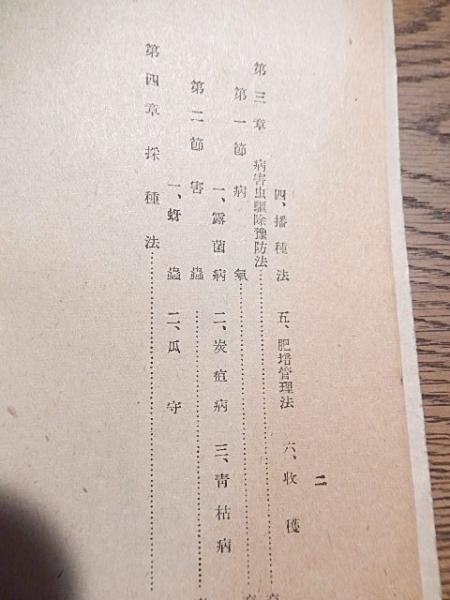 二
四、播種法 五、肥培管理法 六、收穫
第三章 病害虫驅除豫防法
第一節 病氣
一、露菌病 二、炭疽病 三、青枯病
第二節 害蟲
一、蚜蟲 二、瓜守
第四章 採種法